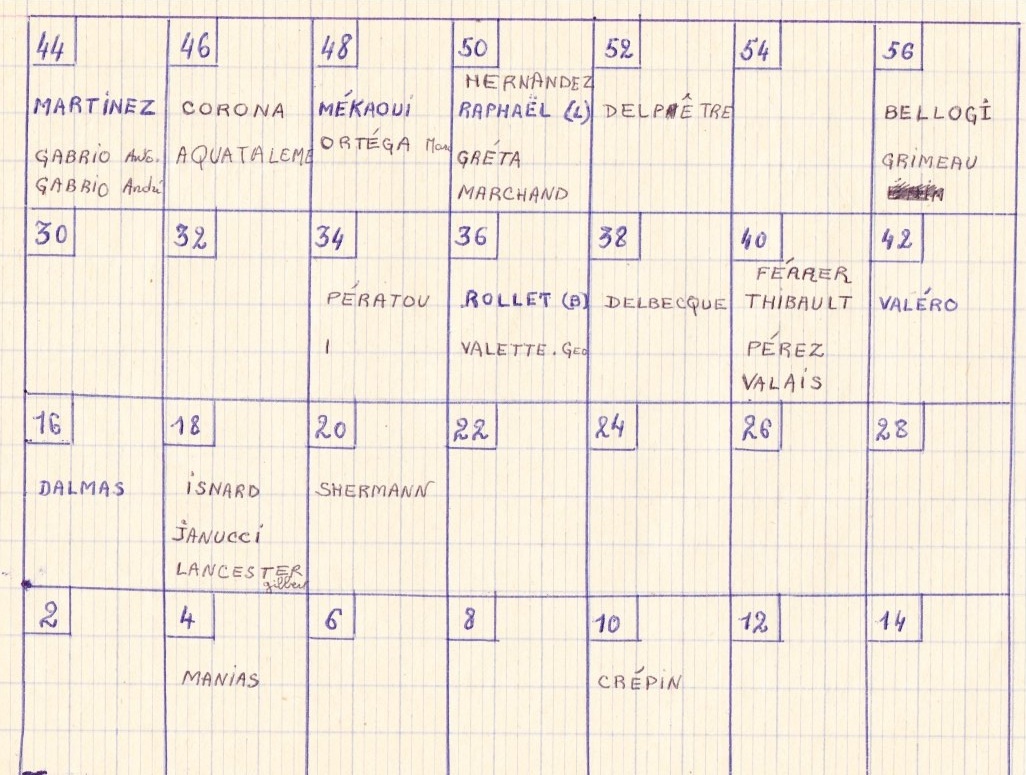 44 46 48 50 52 54 56
HERNANDEZ
MARTINEZ CORONA MÉKAOUI RAPHAËL (L) DELPÊTRE BELLOGÎ
GABRIO Aug. AQUATALEME ORTÉGA GRÉTA GRIMEAU
GABRIO André MARCHAND
30 32 34 36 38 40 42
FÉRRER
PÉRATOU ROLLET (B) DELBECQUE THIBAULT VALÉRO
I VALETTE.Geo PÉREZ
VALAIS
16 18 20 22 24 26 28
DALMAS ISNARD SHERMANN
JANUCCI
LANCESTER
gilbert
2 4 6 8 10 12 14
MANIAS CRÉPIN